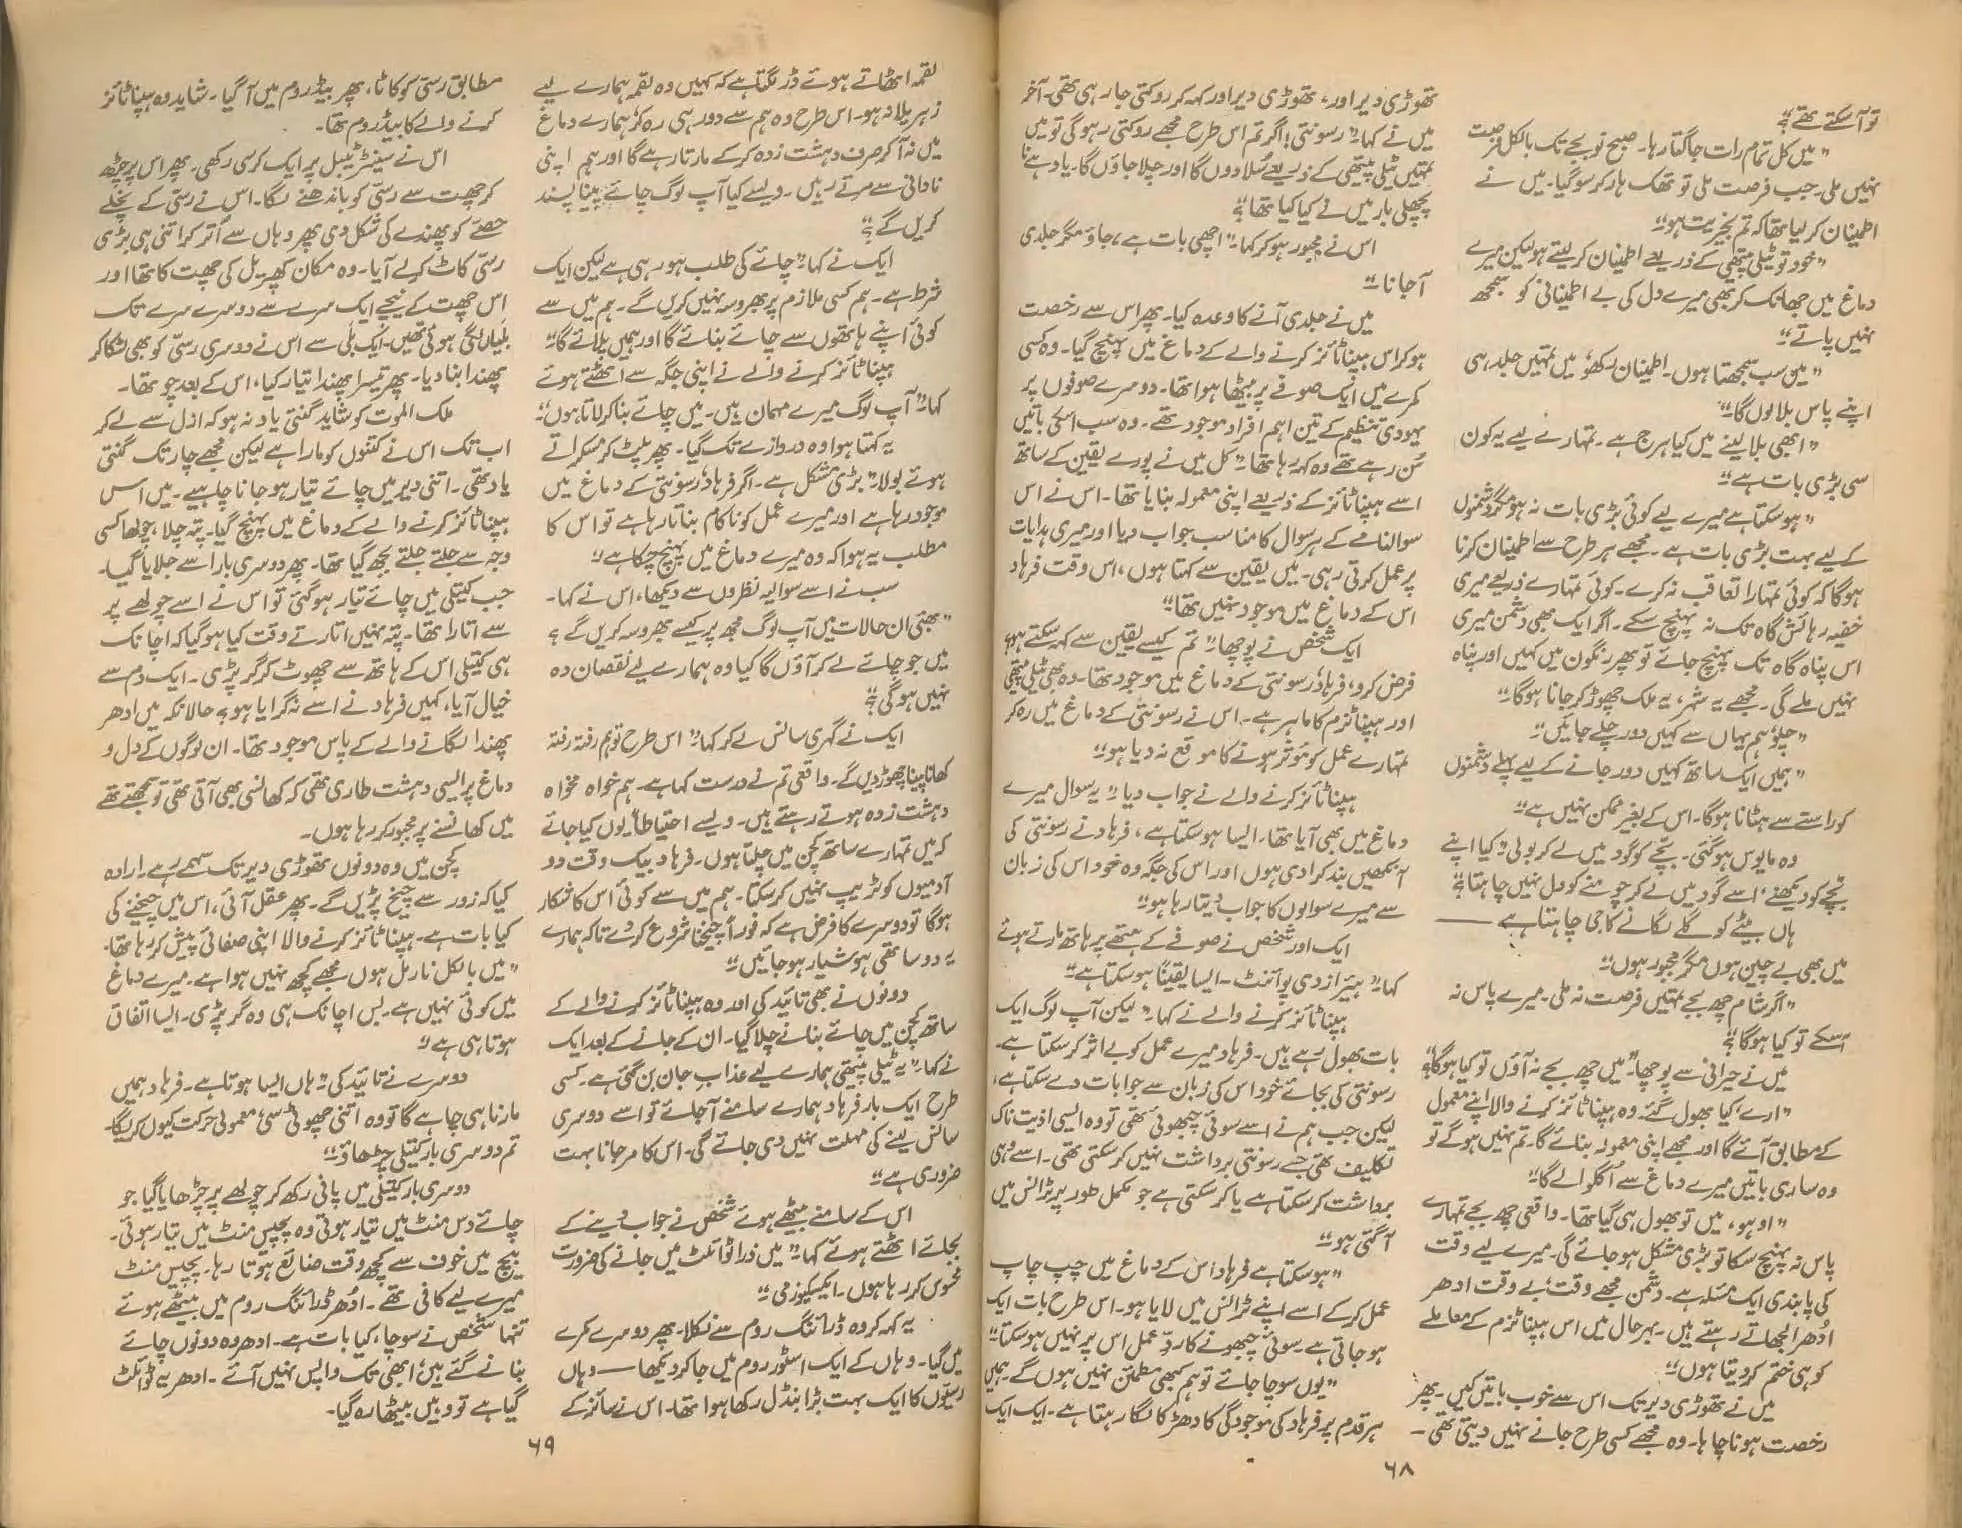 تو آسکتے تھے؟“
”میں کل تمام رات جاگتا رہا۔ صبح نو بجے تک بالکل فرصت
نہیں ملی۔ جب فرصت ملی تو تھک ہار کر سو گیا۔ میں نے
اطمینان کر لیا تھا کہ تم بخیریت ہو۔“
”خود تو ٹیلی پیتھی کے ذریعے اطمینان کر لیتے ہو لیکن میرے
دماغ میں جھانک کر بھی میرے دل کی بے اطمینانی کو سمجھ
نہیں پاتے۔“
”میں سب سمجھتا ہوں۔ اطمینان رکھو، میں تمہیں جلد ہی
اپنے پاس بلا لوں گا۔“
”ابھی بلا لینے میں کیا ہرج ہے۔ تمہارے لیے یہ کون
سی بڑی بات ہے۔“
”ہو سکتا ہے میرے لیے کوئی بڑی بات نہ ہو مگر دشمنوں
کے لیے بہت بڑی بات ہے۔ مجھے ہر طرح سے اطمینان کرنا
ہوگا کہ کوئی تمہارا تعاقب نہ کرے۔ کوئی تمہارے ذریعے میری
خفیہ رہائش گاہ تک نہ پہنچ سکے۔ اگر ایک بھی دشمن میری
اس پناہ گاہ تک پہنچ جائے تو پھر رنگون میں کہیں اور پناہ
نہیں ملے گی۔ مجھے یہ شہر، یہ ملک چھوڑ کر جانا ہوگا۔“
”چلو ہم یہاں سے کہیں دور چلے جائیں۔“
”ہمیں ایک ساتھ کہیں دور جانے کے لیے پہلے دشمنوں
کو راستے سے ہٹانا ہوگا۔ اس کے بغیر ممکن نہیں ہے۔“
وہ مایوس ہوگئی۔ بچے کو گود میں لے کر بولی ”کیا اپنے
بچے کو دیکھنے، اسے گود میں لے کر چومنے کو دل نہیں چاہتا؟“
ہاں بیٹے کو گلے لگانے کا جی چاہتا ہے ——
میں بھی بے چین ہوں مگر مجبور ہوں۔“
”اگر شام چھ بجے تمہیں فرصت نہ ملی۔ میرے پاس نہ
آسکے تو کیا ہوگا؟“
میں نے حیرانی سے پوچھا ”میں چھ بجے نہ آؤں تو کیا ہوگا؟“
”ارے، کیا بھول گئے۔ وہ ہپناٹائز کرنے والا اپنے معمول
کے مطابق آئے گا اور مجھے اپنی معمولہ بنائے گا۔ تم نہیں ہوگے تو
وہ ساری باتیں میرے دماغ سے اگلوالے گا۔“
”اوہو، میں تو بھول ہی گیا تھا۔ واقعی چھ بجے تمہارے
پاس نہ پہنچ سکا تو بڑی مشکل ہو جائے گی۔ میرے لیے وقت
کی پابندی ایک مسئلہ ہے۔ دشمن مجھے وقت، بے وقت ادھر
ادھر الجھاتے رہتے ہیں۔ بہرحال میں اس ہپناٹزم کے معاملے
کو ہی ختم کر دیتا ہوں۔“
میں نے تھوڑی دیر تک اس سے خوب باتیں کیں۔ پھر
رخصت ہونا چاہا۔ وہ مجھے کسی طرح جانے نہیں دیتی تھی۔
تھوڑی دیر اور، تھوڑی دیر اور کہہ کر روکتی جا رہی تھی۔ آخر
میں نے کہا ”رسونتی! اگر تم اس طرح مجھے روکتی رہوگی تو میں
تمہیں ٹیلی پیتھی کے ذریعے سلادوں گا اور چلا جاؤں گا۔ یاد ہے نا
پچھلی بار میں نے کیا کیا تھا؟“
اس نے مجبور ہو کر کہا۔ ”اچھی بات ہے، جاؤ مگر جلدی
آجانا۔“
میں نے جلدی آنے کا وعدہ کیا۔ پھر اس سے رخصت
ہو کر اس ہپناٹائز کرنے والے کے دماغ میں پہنچ گیا۔ وہ کسی
کمرے میں ایک صوفے پر بیٹھا ہوا تھا۔ دوسرے صوفوں پر
یہودی تنظیم کے تین اہم افراد موجود تھے۔ وہ سب اسکی باتیں
سن رہے تھے وہ کہہ رہا تھا ”کل میں نے پورے یقین کے ساتھ
اسے ہپناٹائز کے ذریعے اپنی معمولہ بنایا تھا۔ اس نے اس
سوالنامے کے ہر سوال کا مناسب جواب دیا اور میری ہدایات
پر عمل کرتی رہی۔ میں یقین سے کہتا ہوں، اس وقت فرہاد
اس کے دماغ میں موجود نہیں تھا۔“
ایک شخص نے پوچھا ”تم کیسے یقین سے کہہ سکتے ہو؟
فرض کرو، فرہاد رسونتی کے دماغ میں موجود تھا۔ وہ بھی ٹیلی پیتھی
اور ہپناٹزم کا ماہر ہے۔ اس نے رسونتی کے دماغ میں رہ کر
تمہارے عمل کو مؤثر ہونے کا موقع نہ دیا ہو۔“
ہپناٹائز کرنے والے نے جواب دیا ”یہ سوال میرے
دماغ میں بھی آیا تھا۔ ایسا ہو سکتا ہے، فرہاد نے رسونتی کی
آنکھیں بند کرادی ہوں اور اس کی جگہ وہ خود اس کی زبان
سے میرے سوالوں کا جواب دیتا رہا ہو۔“
ایک اور شخص نے صوفے کے ہتھے پر ہاتھ مارتے ہوئے
کہا ”ہیئر از دی پوائنٹ۔ ایسا یقیناً ہو سکتا ہے۔“
ہپناٹائز کرنے والے نے کہا۔ ”لیکن آپ لوگ ایک
بات بھول رہے ہیں۔ فرہاد میرے عمل کو بے اثر کر سکتا ہے۔
رسونتی کی بجائے خود اس کی زبان سے جوابات دے سکتا ہے،
لیکن جب ہم نے اسے سوئی چبھوئی تھی تو وہ ایسی اذیت ناک
تکلیف تھی جسے رسونتی برداشت نہیں کرسکتی تھی۔ اسے وہی
برداشت کر سکتا ہے یا کرسکتی ہے جو مکمل طور پر ٹرانس میں
آگئی ہو۔“
”ہو سکتا ہے فرہاد اس کے دماغ میں چپ چاپ
عمل کرکے اسے اپنے ٹرانس میں لایا ہو۔ اس طرح بات ایک
ہو جاتی ہے سوئی چبھونے کا ردِّ عمل اس پر نہیں ہو سکتا۔“
”یوں سوچا جائے تو ہم کبھی مطمئن نہیں ہوں گے۔ ہمیں
ہر قدم پر فرہاد کی موجودگی کا دھڑکا لگا رہتا ہے۔ ایک ایک
۶۸
لقمہ اٹھاتے ہوئے ڈر لگتا ہے کہ کہیں وہ لقمہ ہمارے لیے
زہریلا نہ ہو۔ اس طرح وہ ہم سے دور ہی رہ کر، ہمارے دماغ
میں نہ آ کر صرف دہشت زدہ کرکے مارتا رہے گا اور ہم اپنی
نادانی سے مرتے رہیں۔ ویسے کیا آپ لوگ چائے پینا پسند
کریں گے؟“
ایک نے کہا ”چائے کی طلب ہو رہی ہے لیکن ایک
شرط ہے۔ ہم کسی ملازم پر بھروسہ نہیں کریں گے۔ ہم میں سے
کوئی اپنے ہاتھوں سے چائے بنائے گا اور ہمیں پلائے گا۔“
ہپناٹائز کرنے والے نے اپنی جگہ سے اٹھتے ہوئے
کہا ”آپ لوگ میرے مہمان ہیں۔ میں چائے بنا کر لاتا ہوں“
یہ کہتا ہوا وہ دروازے تک گیا۔ پھر پلٹ کر مسکراتے
ہوئے بولا ”بڑی مشکل ہے۔ اگر فرہاد، رسونتی کے دماغ میں
موجود رہا ہے اور میرے عمل کو ناکام بناتا رہا ہے تو اس کا
مطلب یہ ہوا کہ وہ میرے دماغ میں پہنچ چکا ہے۔“
سب نے اسے سوالیہ نظروں سے دیکھا، اس نے کہا۔
”بھئی ان حالات میں آپ لوگ مجھ پر کیسے بھروسہ کریں گے؟
میں جو چائے لے کر آؤں گا کیا وہ ہمارے لیے نقصان دہ
نہیں ہوگی؟“
ایک نے گہری سانس لے کر کہا ”اس طرح تو ہم رفتہ رفتہ
کھانا پینا چھوڑ دیں گے۔ واقعی تم نے درست کہا ہے۔ ہم خواہ مخواہ
دہشت زدہ ہوتے رہتے ہیں۔ ویسے احتیاطاً یوں کیا جائے
کہ میں تمہارے ساتھ کچن میں چلتا ہوں۔ فرہاد بیک وقت دو
آدمیوں کو ٹریپ نہیں کرسکتا۔ ہم میں سے کوئی اس کا شکار
ہوگا تو دوسرے کا فرض ہے کہ فوراً چیخنا شروع کردے تاکہ ہمارے
یہ دو ساتھی ہوشیار ہو جائیں۔“
دونوں نے بھی تائید کی اور وہ ہپناٹائز کرنے والے کے
ساتھ کچن میں چائے بنانے چلا گیا۔ ان کے جانے کے بعد ایک
نے کہا ”یہ ٹیلی پیتھی ہمارے لیے عذابِ جان بن گئی ہے۔ کسی
طرح ایک بار فرہاد ہمارے سامنے آجائے تو اسے دوسری
سانس لینے کی مہلت نہیں دی جائے گی۔ اس کا مر جانا بہت
ضروری ہے۔“
اس کے سامنے بیٹھے ہوئے شخص نے جواب دینے کے
بجائے اٹھتے ہوئے کہا ”میں ذرا ٹوائلٹ میں جانے کی ضرورت
محسوس کر رہا ہوں۔ ایکسکیوز می۔“
یہ کہہ کر وہ ڈرائنگ روم سے نکلا۔ پھر دوسرے کمرے
میں گیا۔ وہاں کے ایک اسٹور روم میں جا کر دیکھا —— وہاں
رسیّوں کا ایک بہت بڑا بنڈل رکھا ہوا تھا۔ اس نے سائز کے
مطابق رسّی کو کاٹا، پھر بیڈ روم میں آگیا۔ شاید وہ ہپناٹائز
کرنے والے کا بیڈ روم تھا۔
اس نے سینٹر ٹیبل پر ایک کرسی رکھی۔ پھر اس پر چڑھ
کر چھت سے رسّی کو باندھنے لگا۔ اس نے رسّی کے نچلے
حصّے کو پھندے کی شکل دی پھر وہاں سے اُتر کر اتنی ہی بڑی
رسّی کاٹ کر لے آیا۔ وہ مکان کھپریل کی چھت کا تھا اور
اس چھت کے نیچے ایک سرے سے دوسرے سرے تک
بلیاں لگی ہوئی تھیں۔ ایک بلّی سے اس نے دوسری رسّی کو بھی لٹکا کر
پھندا بنا دیا۔ پھر تیسرا پھندا تیار کیا، اس کے بعد چوتھا۔
ملک الموت کو شاید گنتی یاد نہ ہو کہ ازل سے لے کر
اب تک اس نے کتنوں کو مارا ہے لیکن مجھے چار تک گنتی
یاد تھی۔ اتنی دیر میں چائے تیار ہو جانا چاہیے۔ میں اس
ہپناٹائز کرنے والے کے دماغ میں پہنچ گیا۔ پتہ چلا، چولھا کسی
وجہ سے جلتے جلتے بجھ گیا تھا۔ پھر دوسری بار اسے جلایا گیا۔
جب کیتلی میں چائے تیار ہوگئی تو اس نے اسے چولھے پر
سے اتارا تھا۔ پتہ نہیں اتارتے وقت کیا ہوگیا کہ اچانک
ہی کیتلی اس کے ہاتھ سے چھوٹ کر گر پڑی۔ ایک دم سے
خیال آیا، کہیں فرہاد نے اسے نہ گرایا ہو؟ حالانکہ میں ادھر
پھندا لگانے والے کے پاس موجود تھا۔ ان لوگوں کے دل و
دماغ پر ایسی دہشت طاری تھی کہ کھانسی بھی آتی تھی تو سمجھتے تھے
میں کھانسنے پر مجبور کر رہا ہوں۔
کچن میں وہ دونوں تھوڑی دیر تک سہمے رہے۔ ارادہ
کیا کہ زور سے چیخ پڑیں گے۔ پھر عقل آئی، اس میں چیخنے کی
کیا بات ہے۔ ہپناٹائز کرنے والا اپنی صفائی پیش کر رہا تھا۔
”میں بالکل نارمل ہوں مجھے کچھ نہیں ہوا ہے۔ میرے دماغ
میں کوئی نہیں ہے۔ بس اچانک ہی وہ گر پڑی۔ ایسا اتفاق
ہوتا ہی ہے۔“
دوسرے نے تائید کی ”ہاں ایسا ہوتا ہے۔ فرہاد ہمیں
مارنا ہی چاہے گا تو وہ اتنی چھوٹی سی، معمولی حرکت کیوں کرے گا۔
تم دوسری بار کیتلی چڑھاؤ۔“
دوسری بار کیتلی میں پانی رکھ کر چولھے پر چڑھایا گیا جو
چائے دس منٹ میں تیار ہوتی وہ پچیس منٹ میں تیار ہوئی۔
بیچ میں خوف سے کچھ وقت ضائع ہوتا رہا۔ پچیس منٹ
میرے لیے کافی تھے۔ اُدھر ڈرائنگ روم میں بیٹھے ہوئے
تنہا شخص نے سوچا، کیا بات ہے۔ ادھر وہ دونوں چائے
بنانے گئے ہیں، ابھی تک واپس نہیں آئے۔ ادھر یہ ٹوائلٹ
گیا ہے تو وہیں بیٹھا رہ گیا۔
۶۹